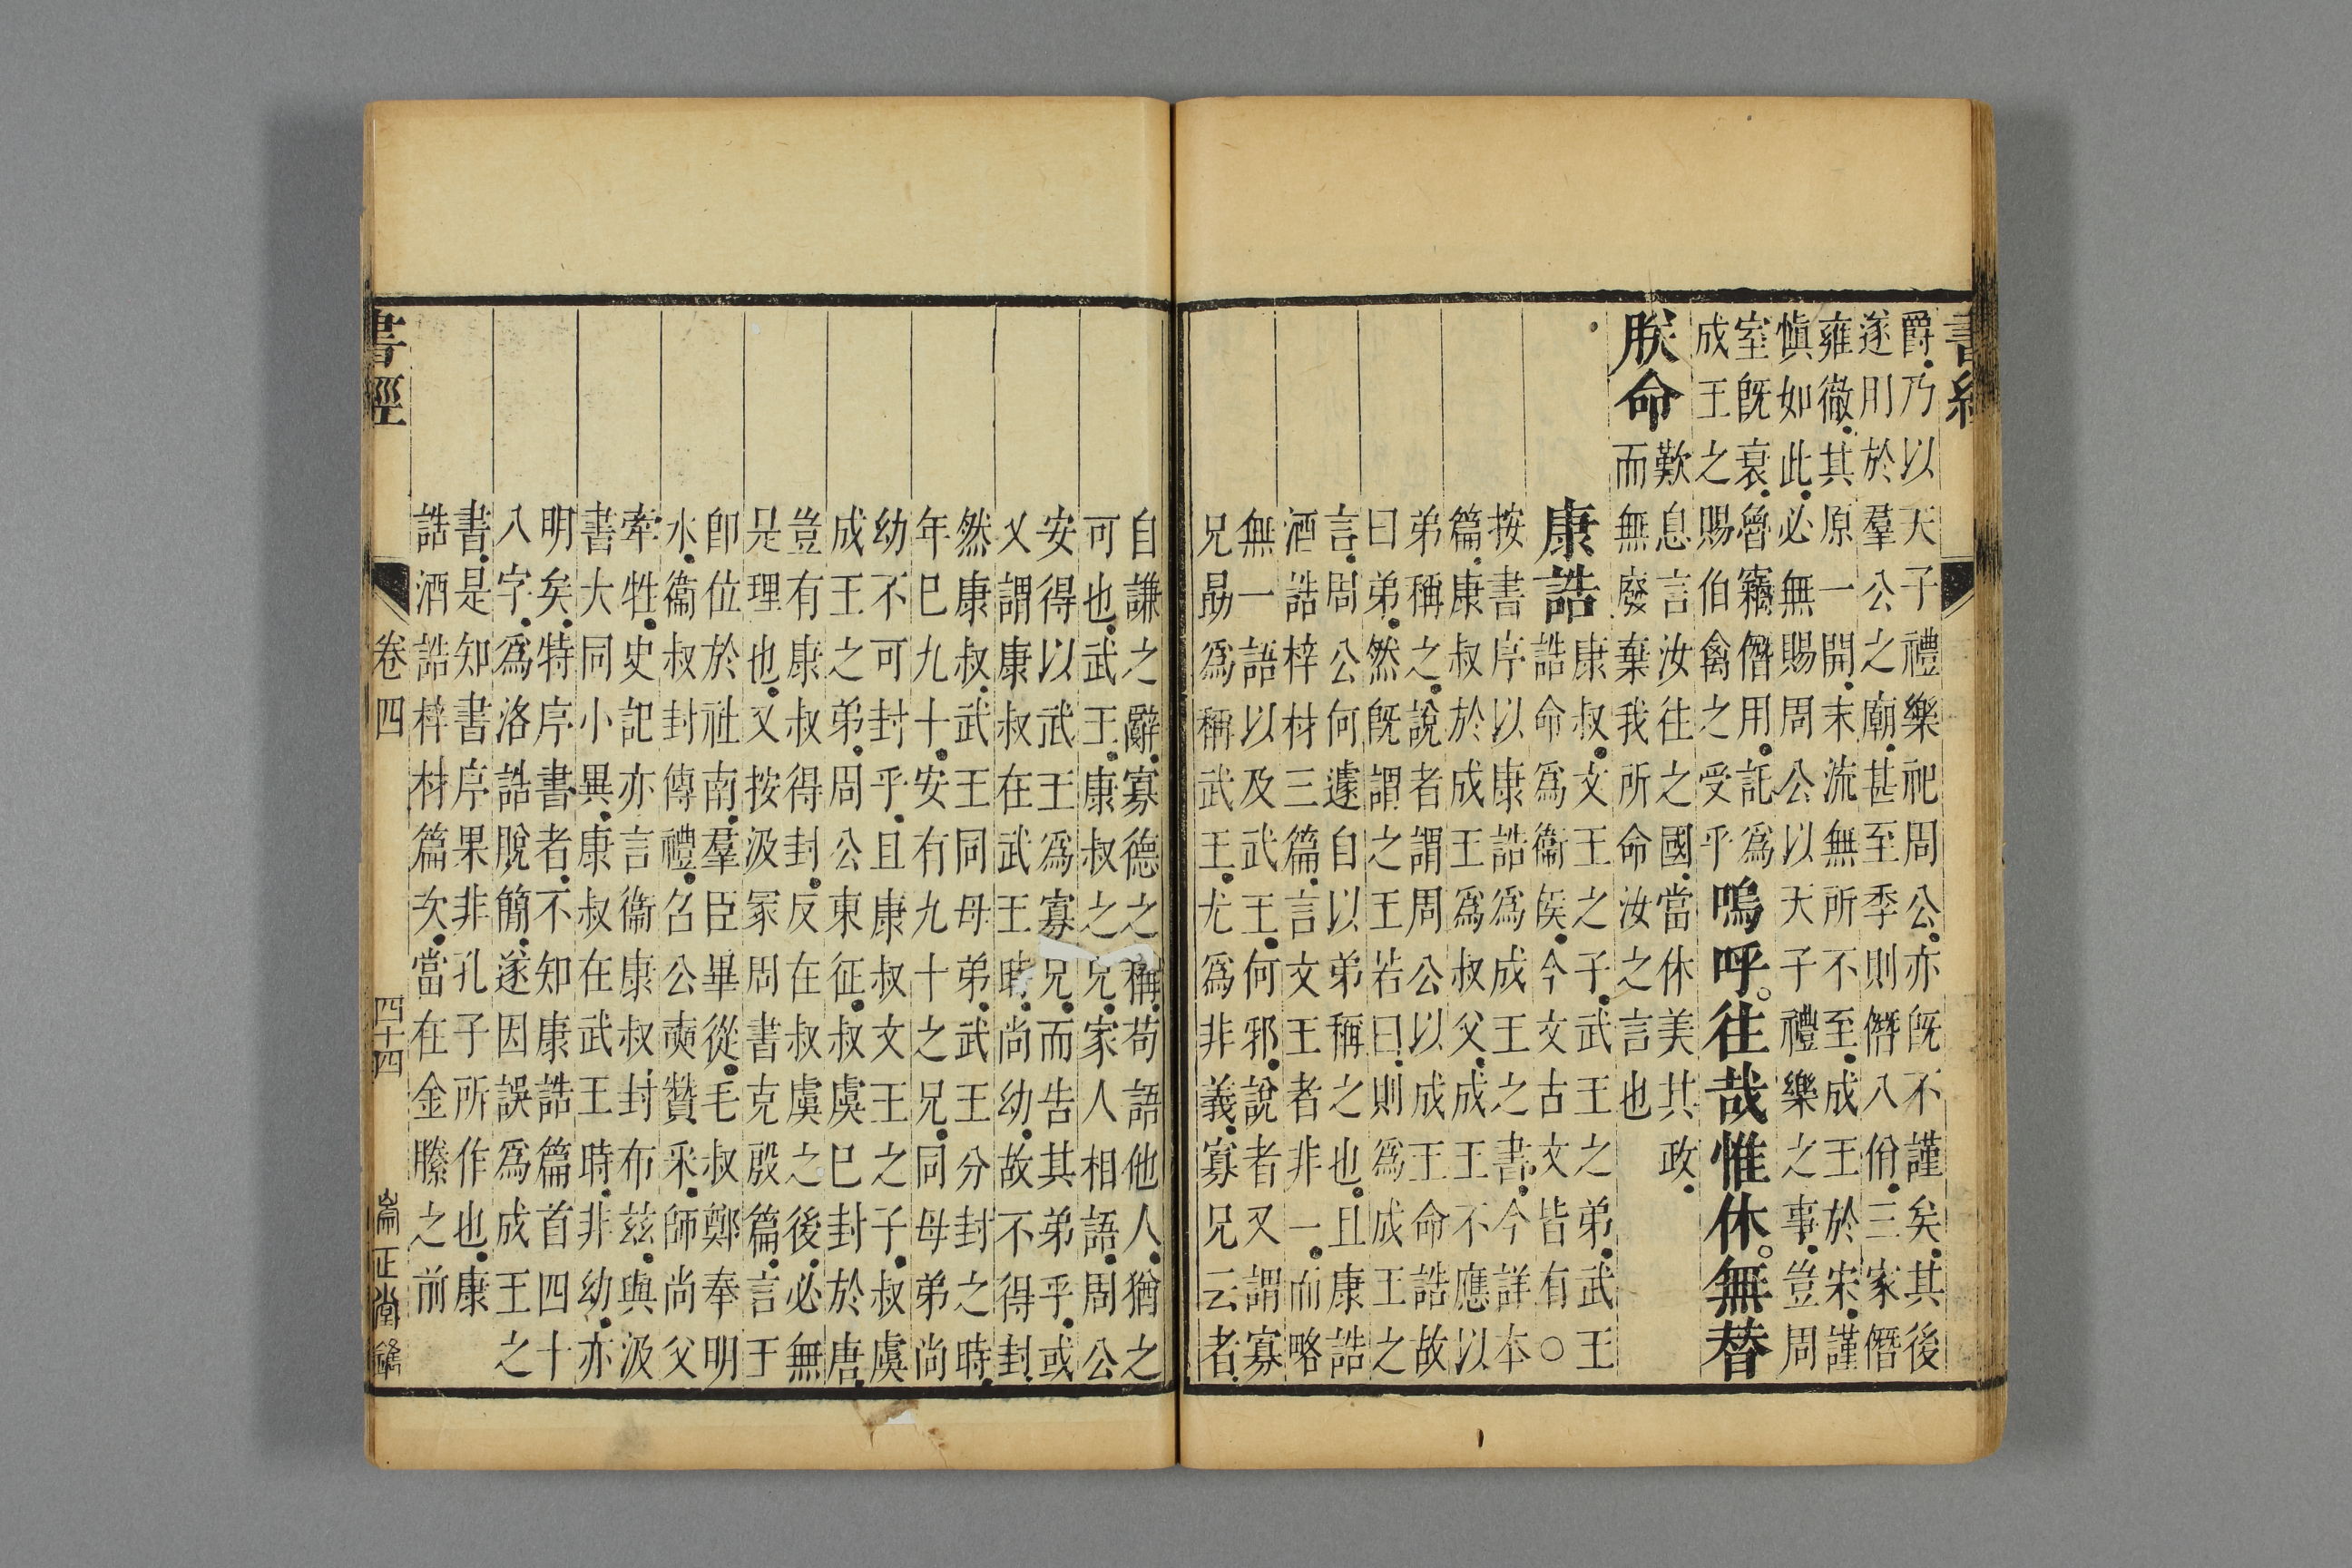 書經
爵乃以天子禮樂祀周公亦旣不謹矣其後
遂用於羣公之廟甚至季則僭八佾三家僭
雍徹其原一開末流無所不至成王於宋謹
愼如此必無賜周公以天子禮樂之事豈周
室旣衰魯竊僭用託爲
成王之賜伯禽之受乎
嗚呼往哉惟休無替
朕命
歎息言汝往之國當休美其政
而無廢棄我所命汝之言也
康誥
康叔文王之子武王之弟武王
誥命爲衞侯今文古文皆有○
按書序以康誥爲成王之書今詳本
篇康叔於成王爲叔父成王不應以
弟稱之說者謂周公以成王命誥故
曰弟然旣謂之王若曰則爲成王之
言周公何遽自以弟稱之也且康誥
酒誥梓材三篇言文王者非一而略
無一語以及武王何邪說者又謂寡
兄勗爲稱武王尤爲非義寡兄云者
自謙之辭寡德之稱苟語他人猶之
可也武王康叔之兄家人相語周公
安得以武王爲寡兄而告其弟乎或
又謂康叔在武王時尚幼故不得封
然康叔武王同母弟武王分封之時
年已九十安有九十之兄同母弟尚
幼不可封乎且康叔文王之子叔虞
成王之弟周公東征叔虞已封於唐
豈有康叔得封反在叔虞之後必無
是理也又按汲冢周書克殷篇言王
卽位於社南羣臣畢從毛叔鄭奉明
水衞叔封傳禮召公奭贊采師尚父
牽牲史記亦言衞康叔封布茲與汲
書大同小異康叔在武王時非幼亦
明矣特序書者不知康誥篇首四十
八字爲洛誥脫簡遂因誤爲成王之
書是知書序果非孔子所作也康
誥酒誥梓材篇次當在金縢之前
書經
卷四
四十四
崙正堂鐫